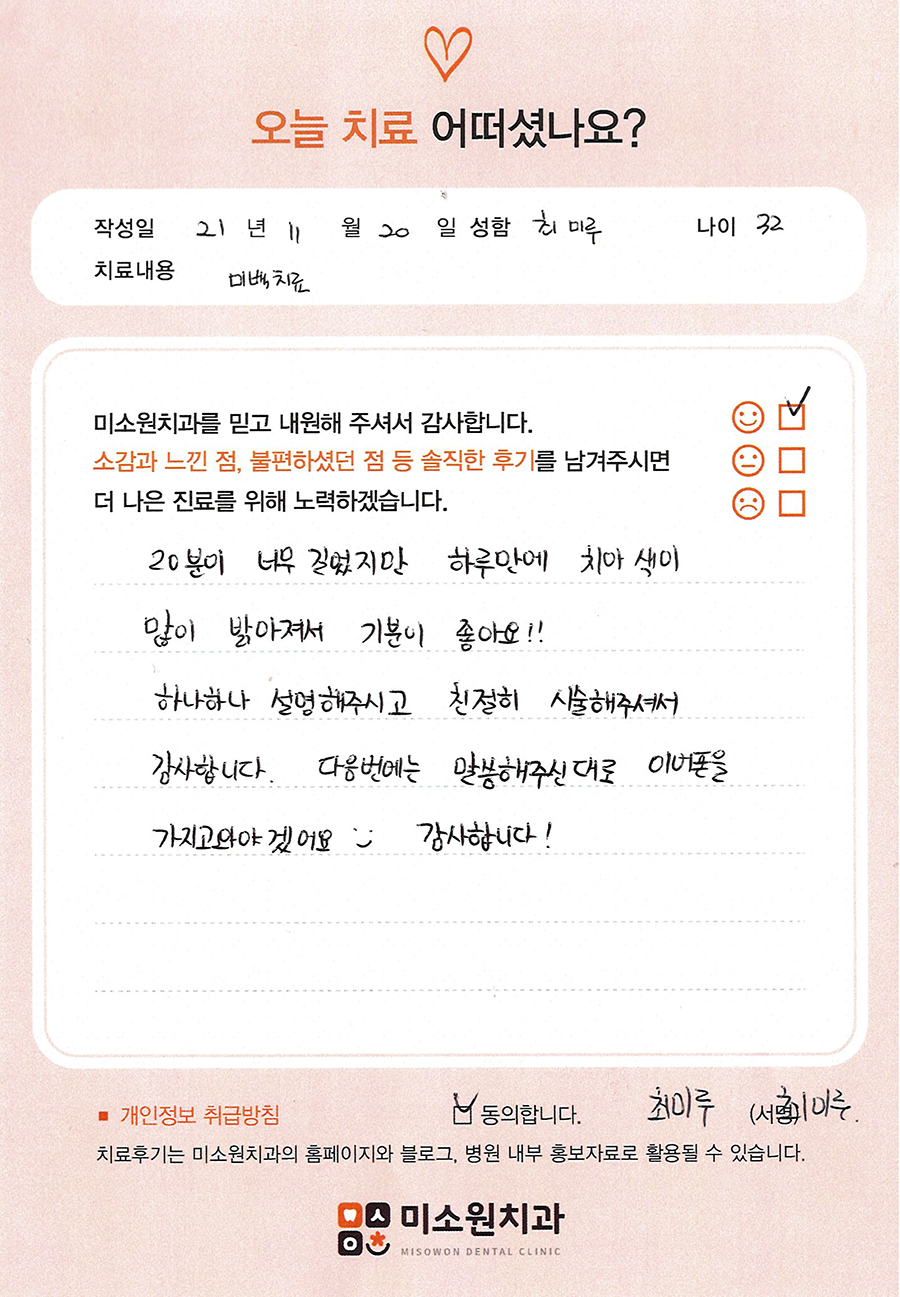 오늘 치료 어떠셨나요?
작성일 21 년 11 월 20 일 성함 최미루 나이 32
치료내용 미백치료
미소원치과를 믿고 내원해 주셔서 감사합니다.
소감과 느낀 점, 불편하셨던 점 등 솔직한 후기를 남겨주시면
더 나은 진료를 위해 노력하겠습니다.
20분이 너무 길었지만 하루만에 치아 색이
많이 밝아져서 기분이 좋아요!!
하나하나 설명해주시고 친절히 시술해주셔서
감사합니다. 다음번에는 말씀해주신대로 이어폰을
가지고와야겠어요 감사합니다!
■ 개인정보 취급방침 동의합니다. 최미루 (서명) 최미루.
치료후기는 미소원치과의 홈페이지와 블로그, 병원 내부 홍보자료로 활용될 수 있습니다.
미소원치과
MISOWON DENTAL CLINIC